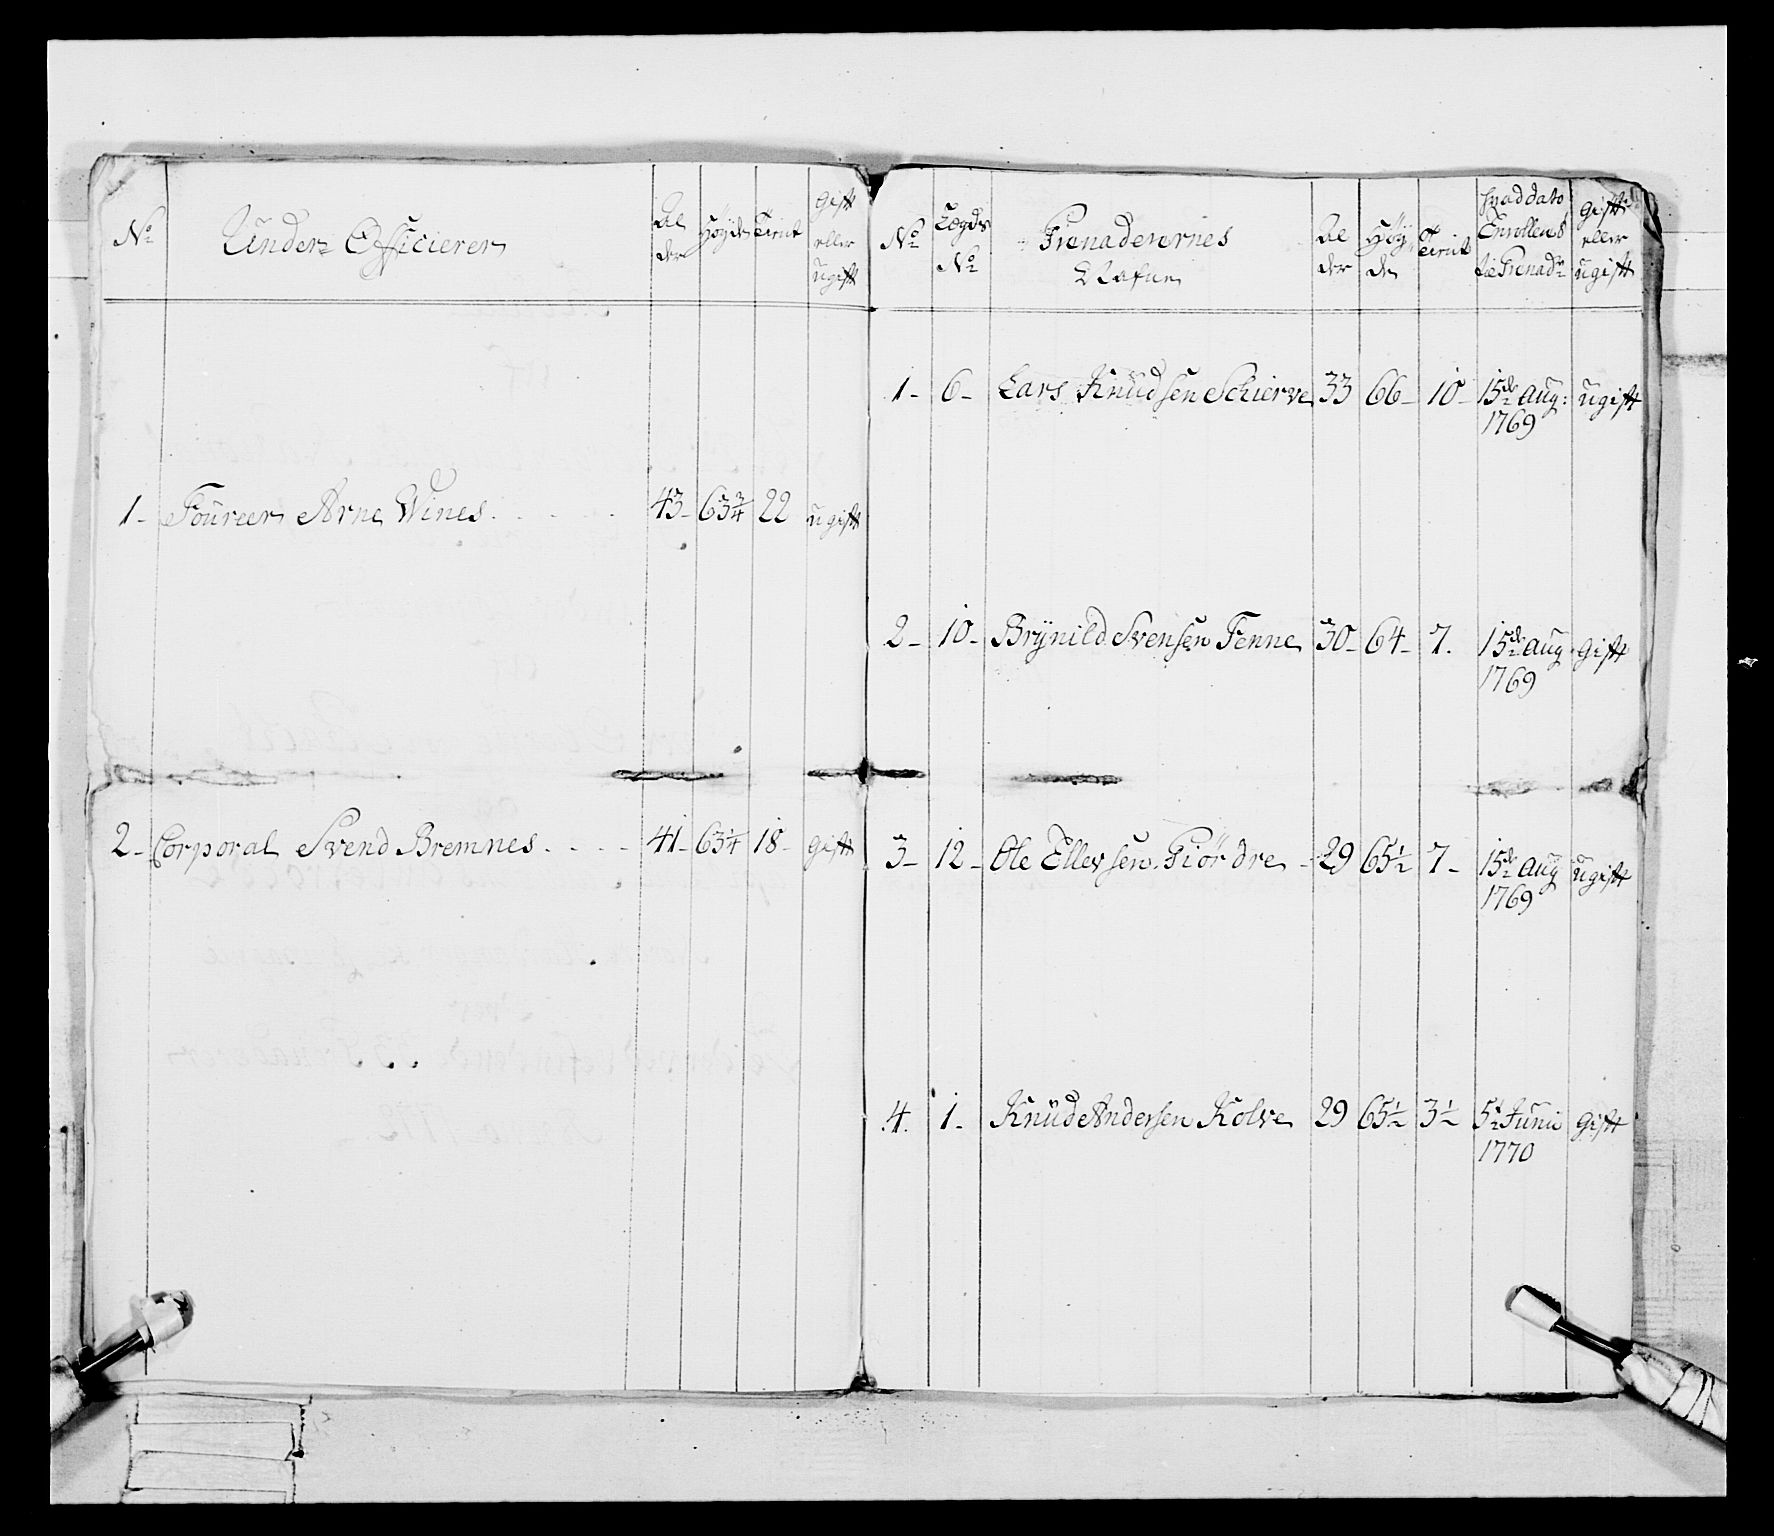 No
Under Officierer
Al
der
Høyde
Tient
Gift
eller
ugift
1- Foureer Arne Wines. 43- 63¾ 22 ugift
2- Corporal Svend Bremnes. 41- 63¼ 18- Gift
No
Lægds
No
Grenaderernes
Nafne
Al
der
Høy
de
Tient
hvad dato
Enrollert
til Grenadr
Gift
eller
ugift
1- 6- Lars Knudsen Schierve 33 66- 10- 15de Aug: ugift
1769
2- 10- Brynild Svensen Fenne 30- 64- 7. 15de Aug Gift
1769
3- 12- Ole Ellevsen Giørdre 29 65½ 7- 15de Aug ugift
1769
4. 1- Knud Andersen Kolve 29 65½ 3½ 5t Juni Gift
1770